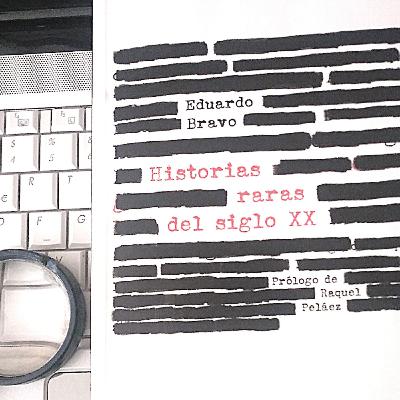 Eduardo
Bravo
Historias
raras
del siglo XX
Prólogo de
Raquel
Peláez
$
4
%
5
R
T
F
G